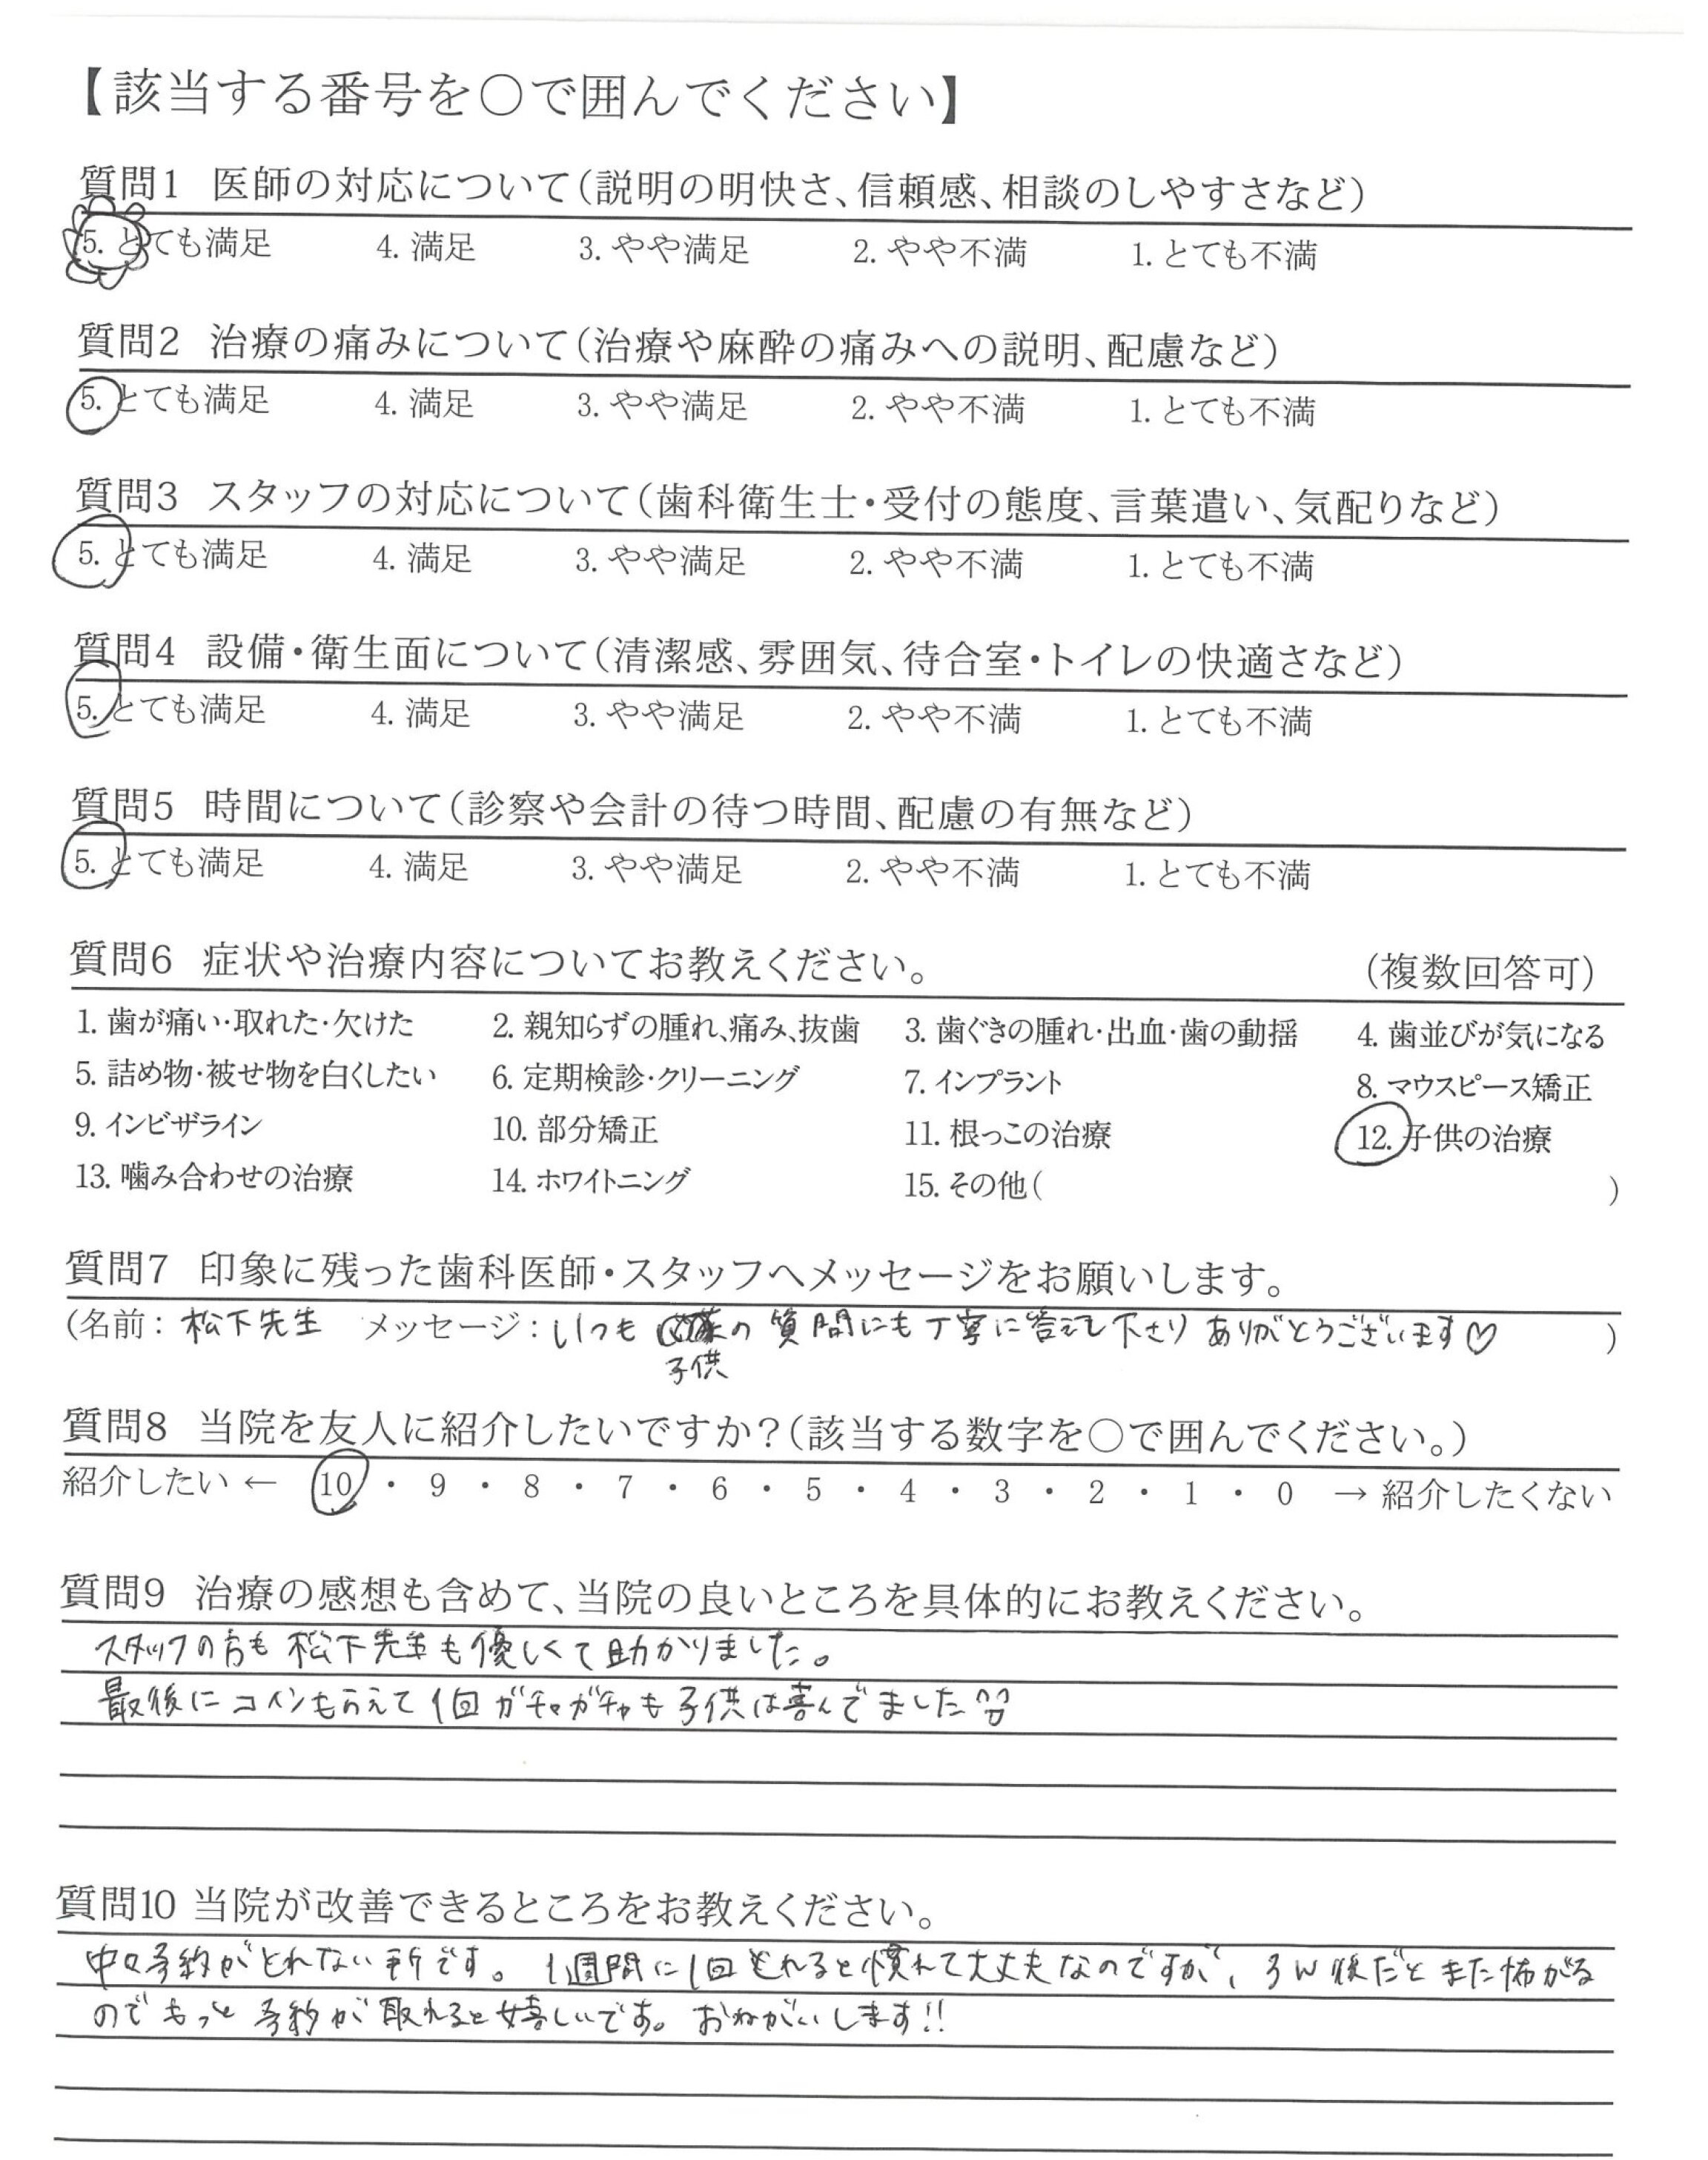 【該当する番号を○で囲んでください】
質問1 医師の対応について（説明の明快さ、信頼感、相談のしやすさなど）
5. とても満足 4. 満足 3. やや満足 2. やや不満 1. とても不満
質問2 治療の痛みについて（治療や麻酔の痛みへの説明、配慮など）
5. とても満足 4. 満足 3. やや満足 2. やや不満 1. とても不満
質問3 スタッフの対応について（歯科衛生士・受付の態度、言葉遣い、気配りなど）
5. とても満足 4. 満足 3. やや満足 2. やや不満 1. とても不満
質問4 設備・衛生面について（清潔感、雰囲気、待合室・トイレの快適さなど）
5. とても満足 4. 満足 3. やや満足 2. やや不満 1. とても不満
質問5 時間について（診察や会計の待つ時間、配慮の有無など）
5. とても満足 4. 満足 3. やや満足 2. やや不満 1. とても不満
質問6 症状や治療内容についてお教えください。 （複数回答可）
1. 歯が痛い・取れた・欠けた 2. 親知らずの腫れ、痛み、抜歯 3. 歯ぐきの腫れ・出血・歯の動揺 4. 歯並びが気になる
5. 詰め物・被せ物を白くしたい 6. 定期検診・クリーニング 7. インプラント 8. マウスピース矯正
9. インビザライン 10. 部分矯正 11. 根っこの治療 12. 子供の治療
13. 噛み合わせの治療 14. ホワイトニング 15. その他（ ）
質問7 印象に残った歯科医師・スタッフへメッセージをお願いします。
（名前： 松下先生 メッセージ：いつも の 質問にも丁寧に答えて下さり ありがとうございます♡ ）
子供
質問8 当院を友人に紹介したいですか？（該当する数字を○で囲んでください。）
紹介したい ← 10 ・ 9 ・ 8 ・ 7 ・ 6 ・ 5 ・ 4 ・ 3 ・ 2 ・ 1 ・ 0 → 紹介したくない
質問9 治療の感想も含めて、当院の良いところを具体的にお教えください。
スタッフの方も 松下先生も優しくて助かりました。
最後に コインもらえて 1回 ガチャガチャも 子供は喜んでました
質問10 当院が改善できるところをお教えください。
中々予約がとれない所です。 1週間に1回とれると慣れて大丈夫なのですが、3W後だと また怖がる
ので もっと 予約が 取れると嬉しいです。 おねがいします!!